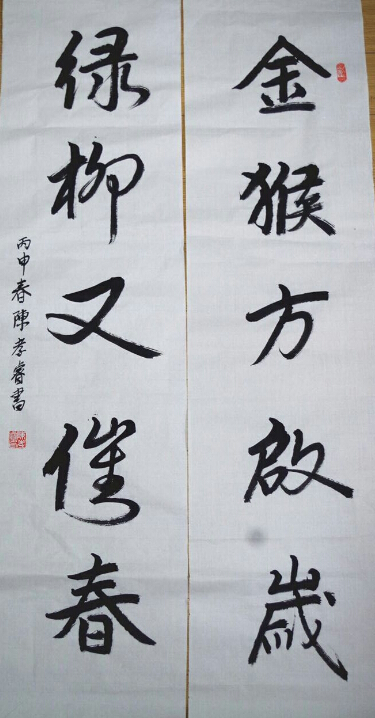 金猴方啟歲
绿柳又催春
丙申春陳孝睿書